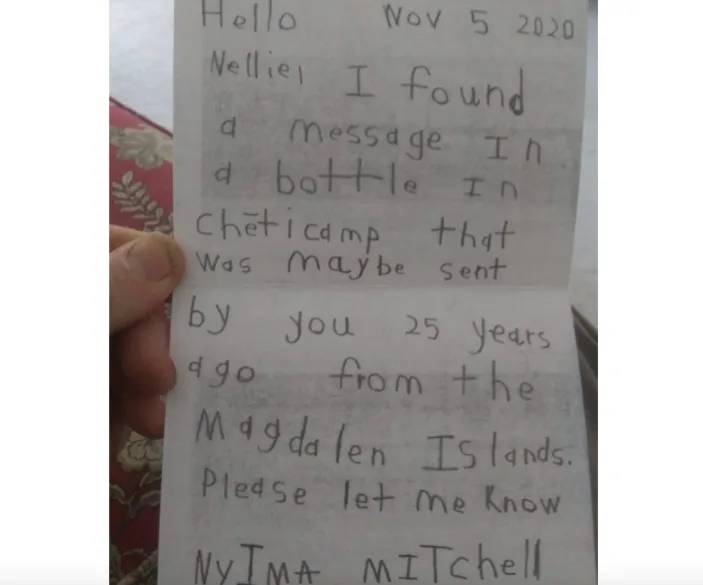 Hello Nov 5 2020
Nellie, I found
a message In
a bottle In
chéticamp that
was maybe sent
by you 25 years
ago from the
Magdalen Islands.
Please let me know
NyIMA MITchell